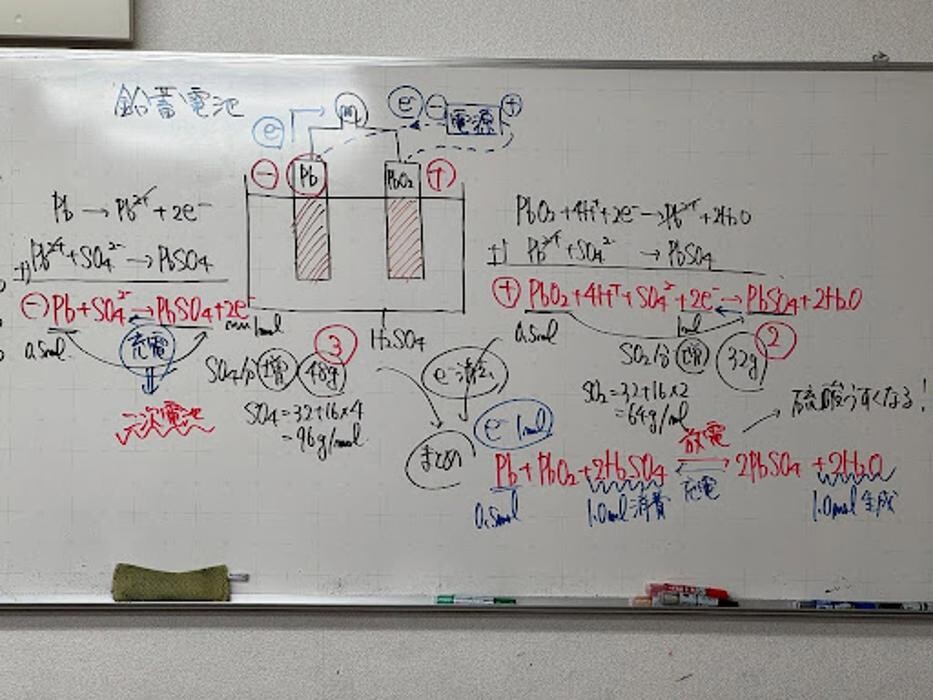 鉛蓄電池
e⁻ m e⁻ ⊖ 電源 ⊕
⊖ Pb PbO₂ ⊕
H₂SO₄
Pb → Pb²⁺ + 2e⁻
+) Pb²⁺ + SO₄²⁻ → PbSO₄
⊖ Pb + SO₄²⁻ → PbSO₄ + 2e⁻
0.5mol 1mol
充電
二次電池
③
SO₄分増 48g
SO₄ = 32+16×4
= 96g/mol
PbO₂ + 4H⁺ + 2e⁻ → Pb²⁺ + 2H₂O
+) Pb²⁺ + SO₄²⁻ → PbSO₄
⊕ PbO₂ + 4H⁺ + SO₄²⁻ + 2e⁻ → PbSO₄ + 2H₂O
0.5mol 1mol
②
SO₂分増 32g
SO₂ = 32+16×2
= 64g/mol
硫酸うすくなる!
e⁻消去
まとめ
e⁻ 1mol
放電
Pb + PbO₂ + 2H₂SO₄ ⇄ 2PbSO₄ + 2H₂O
充電
0.5mol 1.0mol消費 1.0mol生成